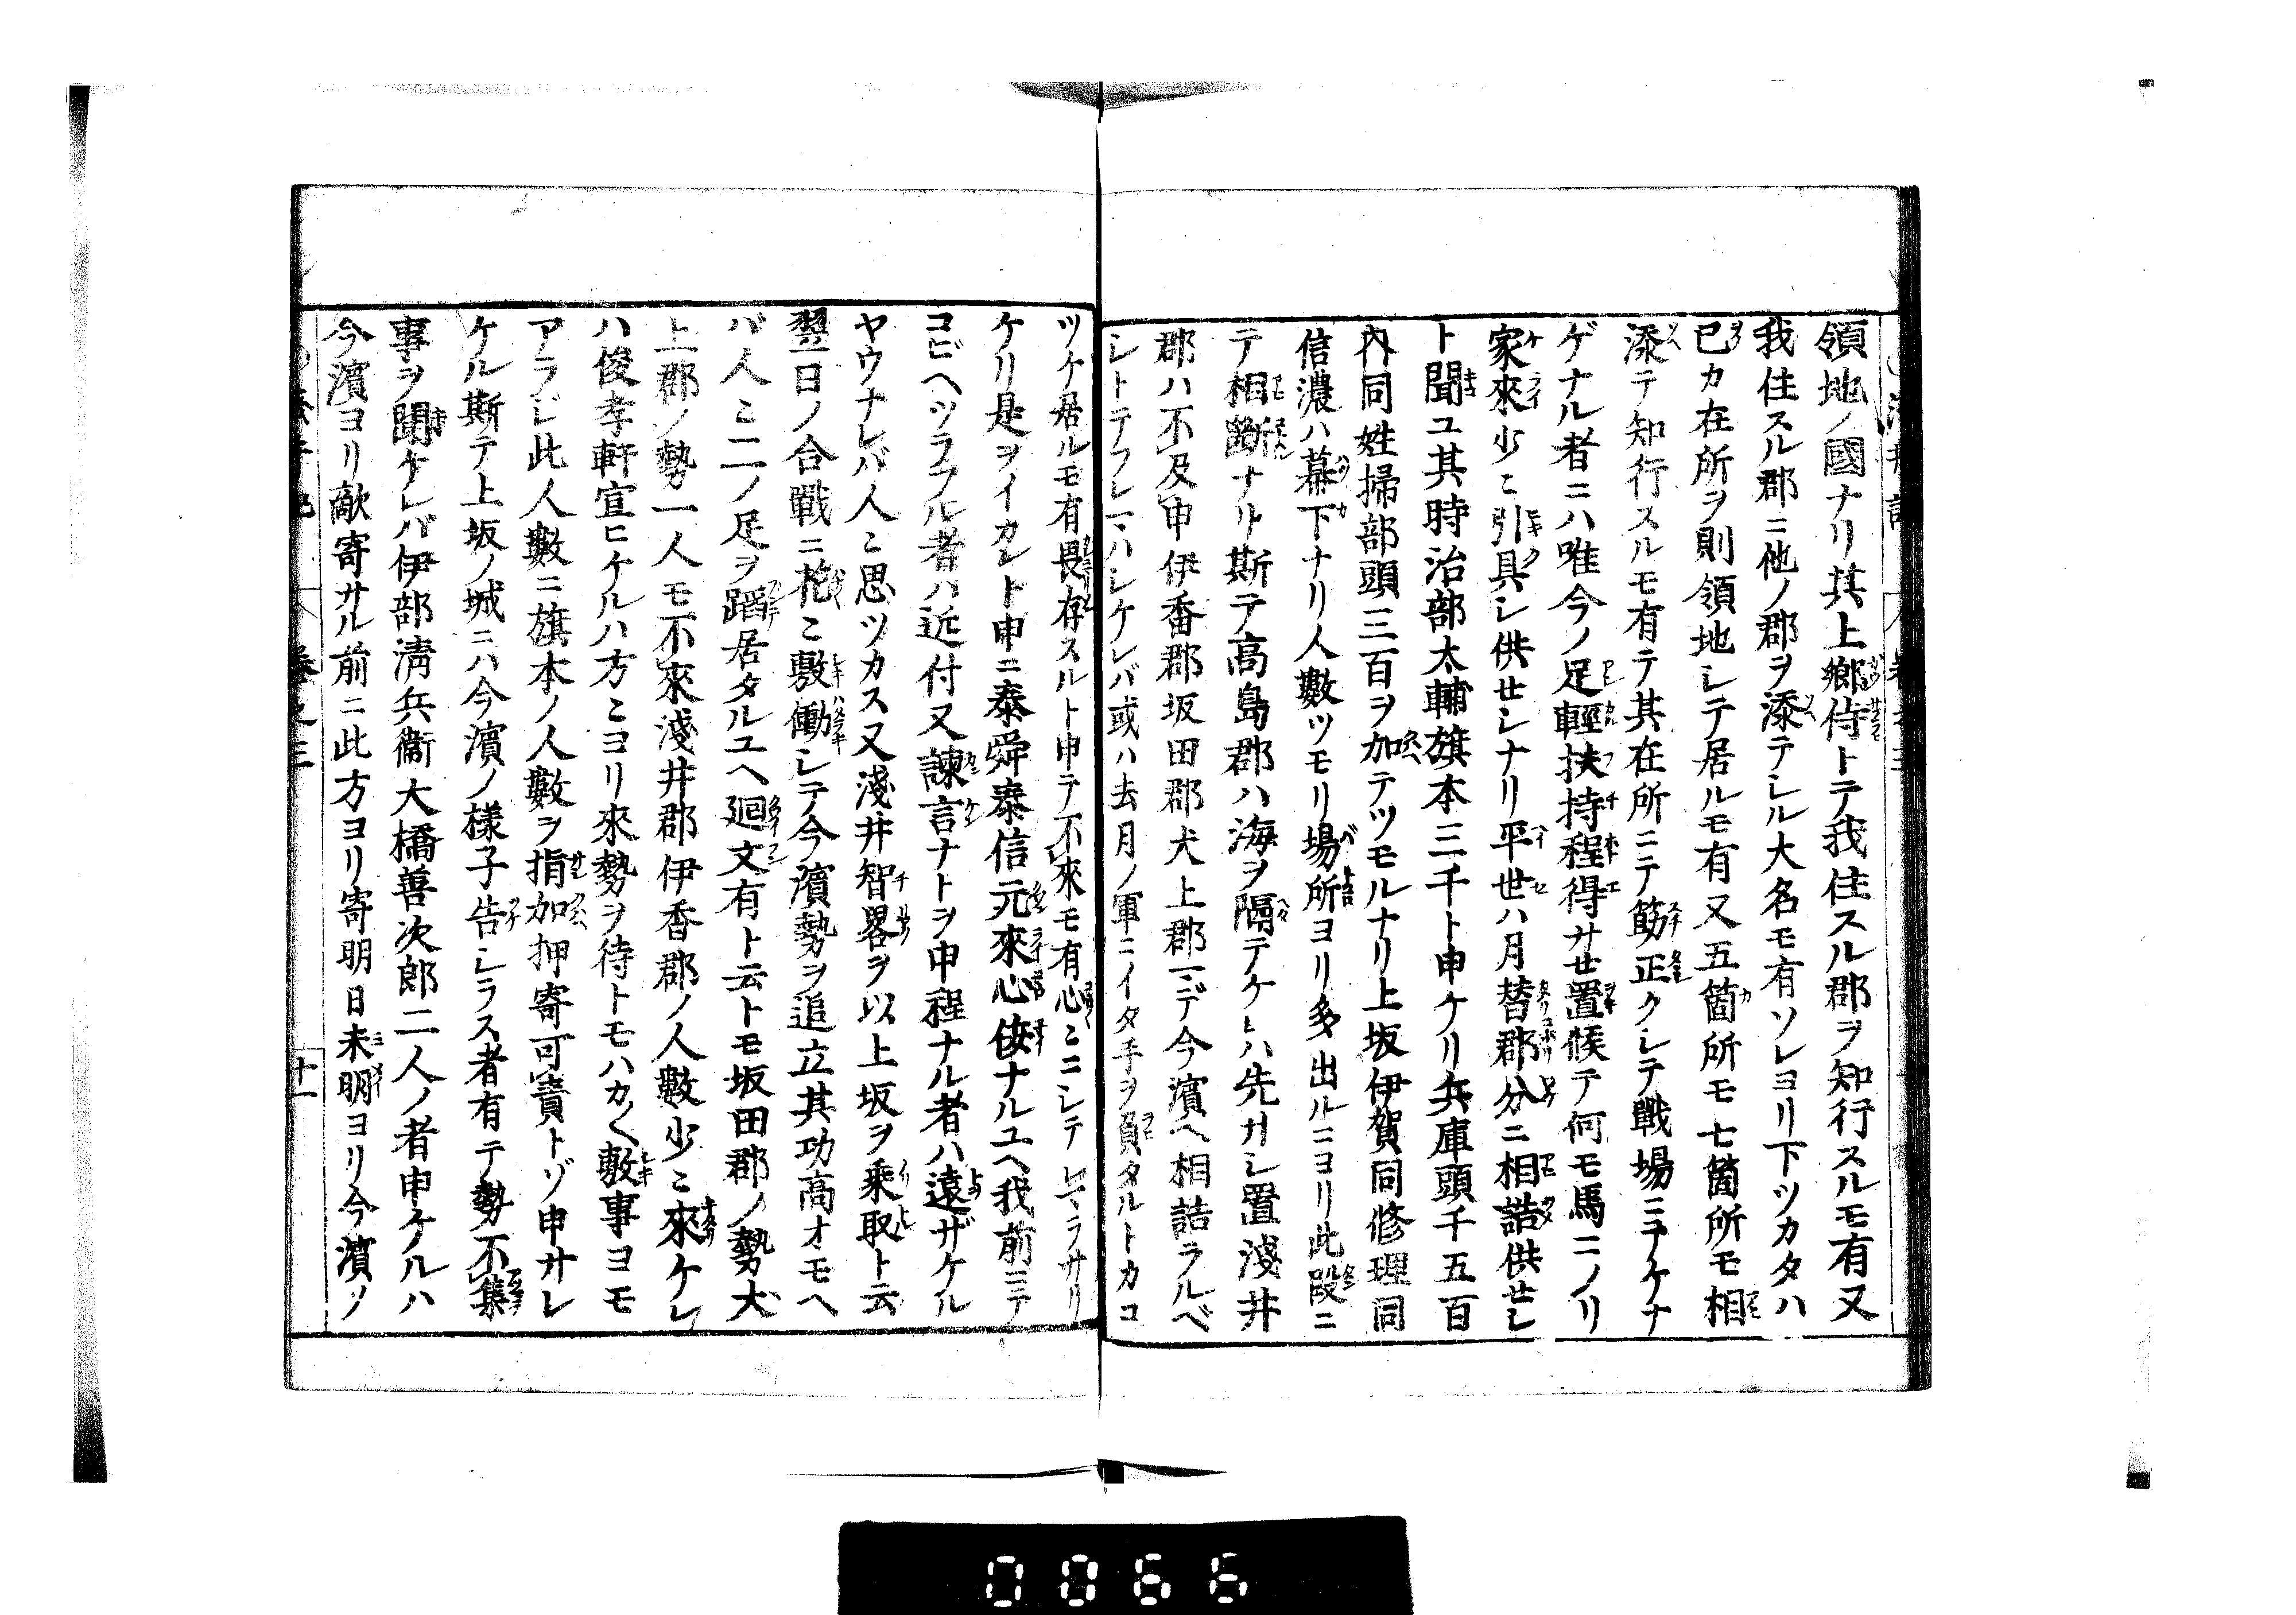 領地ノ國ナリ其上鄉侍トテ我住スル郡ヲ知行スルモ有又
我住スル郡ニ他ノ郡ヲ添テシル大名モ有ソレヨリ下ツカタハ
已カ在所ヲ則領地シテ居ルモ有又五箇所モ七箇所モ相
添テ知行スルモ有テ其在所ニテ筋正クシテ戰場ニテケナ
ゲナル者ニハ唯今ノ足輕扶持程得サセ置候テ何モ馬ニノリ
家來少〻引具シ供セシナリ平世ハ月替郡分ニ相詰供セシ
ト聞ユ其時治部太輔旗本三千ト申ケリ兵庫頭千五百
內同姓掃部頭三百ヲ加テツモルナリ上坂伊賀同修理同
信濃ハ幕下ナリ人數ツモリ場所ヨリ多出ルニヨリ此段ニ
テ相斷ナリ斯テ高島郡ハ海ヲ隔テケレハ先サシ置淺井
郡ハ不及申伊香郡坂田郡犬上郡マデ今濱ヘ相詰ラルベ
シトテフレマハシケレバ或ハ去月ノ軍ニイタ手ヲ負タルトカコ
ツケ居ルモ有畏存スルト申テ不來モ有心〻ニシテシマラサリ
ケリ是ヲイカント申ニ泰舜泰信元來心佞ナルユヘ我前ニテ
コビヘツラフル者ハ近付又諫言ナトヲ申程ナル者ハ遠ザケル
ヤウナレバ人〻思ツカス又淺井智畧ヲ以上坂ヲ乘取ト云
翌日ノ合戰ニ花〻敷働シテ今濱勢ヲ追立其功高オモヘ
バ人〻二ノ足ヲ蹈居タルユヘ廻文有ト云トモ坂田郡ノ勢犬
上郡ノ勢一人モ不來淺井郡伊香郡ノ人數少〻來ケレ
ハ俊孝軒宣ヒケルハ方〻ヨリ來勢ヲ待トモハカ〱敷事ヨモ
アラジ此人數ニ旗本ノ人數ヲ指加押寄可責トゾ申サレ
ケル斯テ上坂ノ城ニハ今濱ノ樣子告シラス者有テ勢不集
事ヲ聞ケレバ伊部淸兵衞大橋善次郎二人ノ者申ケルハ
今濱ヨリ敵寄サル前ニ此方ヨリ寄明日未明ヨリ今濱ノ
卷之三
十一
0066